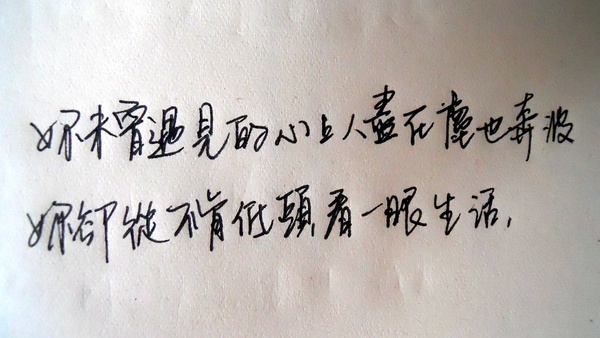 妳未曾遇見的心上人盡在塵世奔波
妳卻從不肯低頭看一眼生活,